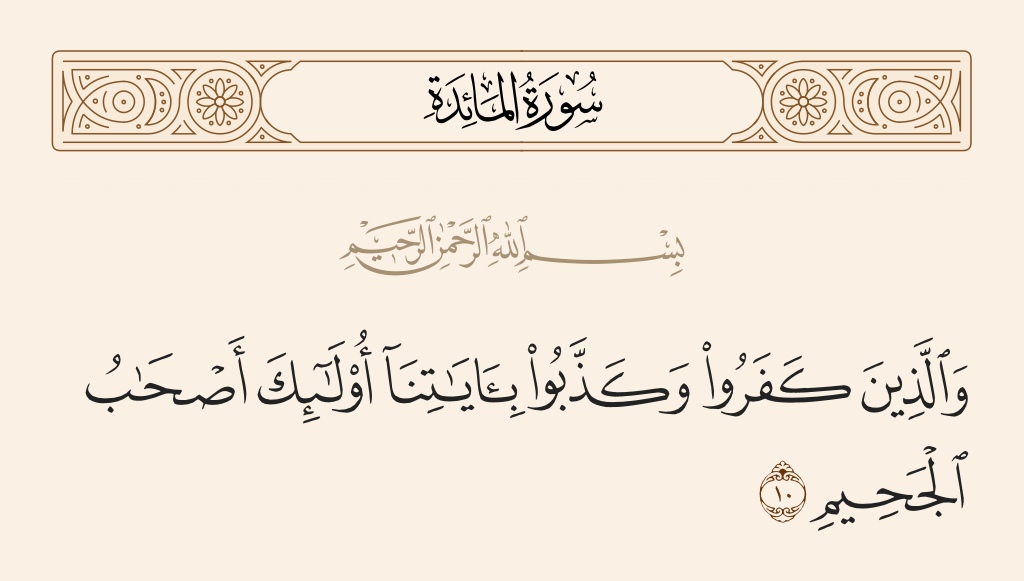 سُورَةُ المَائِدَةِ
بِسْمِ ٱللَّهِ ٱلرَّحْمَٰنِ ٱلرَّحِيمِ
وَٱلَّذِينَ كَفَرُوا۟ وَكَذَّبُوا۟ بِـَٔايَـٰتِنَآ أُو۟لَـٰٓئِكَ أَصْحَـٰبُ
ٱلْجَحِيمِ ١٠